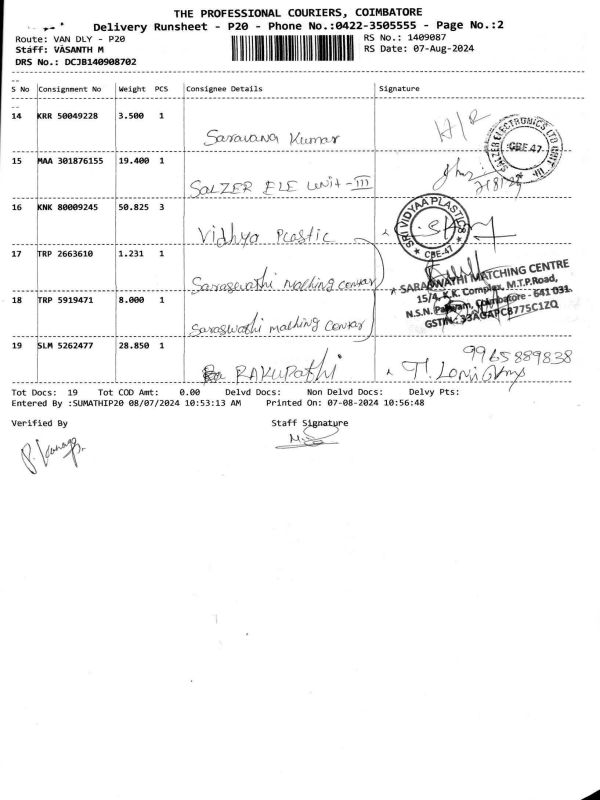 THE PROFESSIONAL COURIERS, COIMBATORE
Delivery Runsheet - P20 - Phone No.:0422-3505555 - Page No.:2
Route: VAN DLY - P20
RS No.: 1409087
Staff: VASANTH M
RS Date: 07-Aug-2024
DRS No.: DCJB140908702
S No Consignment No Weight PCS Consignee Details Signature
14 KRR 50049228 3.500 1 Saravana Kumar H/R
15 MAA 301876155 19.400 1 SALZER ELE UNIT-III
SALZER ELECTRONICS LTD UNIT III CBE-47
16 KNK 80009245 50.825 3 Vidhya Plastic
SRI VIDYAA PLASTICS CBE-47
17 TRP 2663610 1.231 1 Saraswathi
SARASWATHI MATCHING CENTRE
15/4, K.K. Complex, M.T.P.Road,
N.S.N. Palayam, Coimbatore - 641 031.
GSTIN: 33AGAPC8775C1ZQ
18 TRP 5919471 8.000 1 Saraswathi
19 SLM 5262477 28.850 1 RAKUPathi
9965889838
Tot Docs: 19 Tot COD Amt: 0.00 Delvd Docs: Non Delvd Docs: Delvy Pts:
Entered By :SUMATHIP20 08/07/2024 10:53:13 AM Printed On: 07-08-2024 10:56:48
Verified By Staff Signature